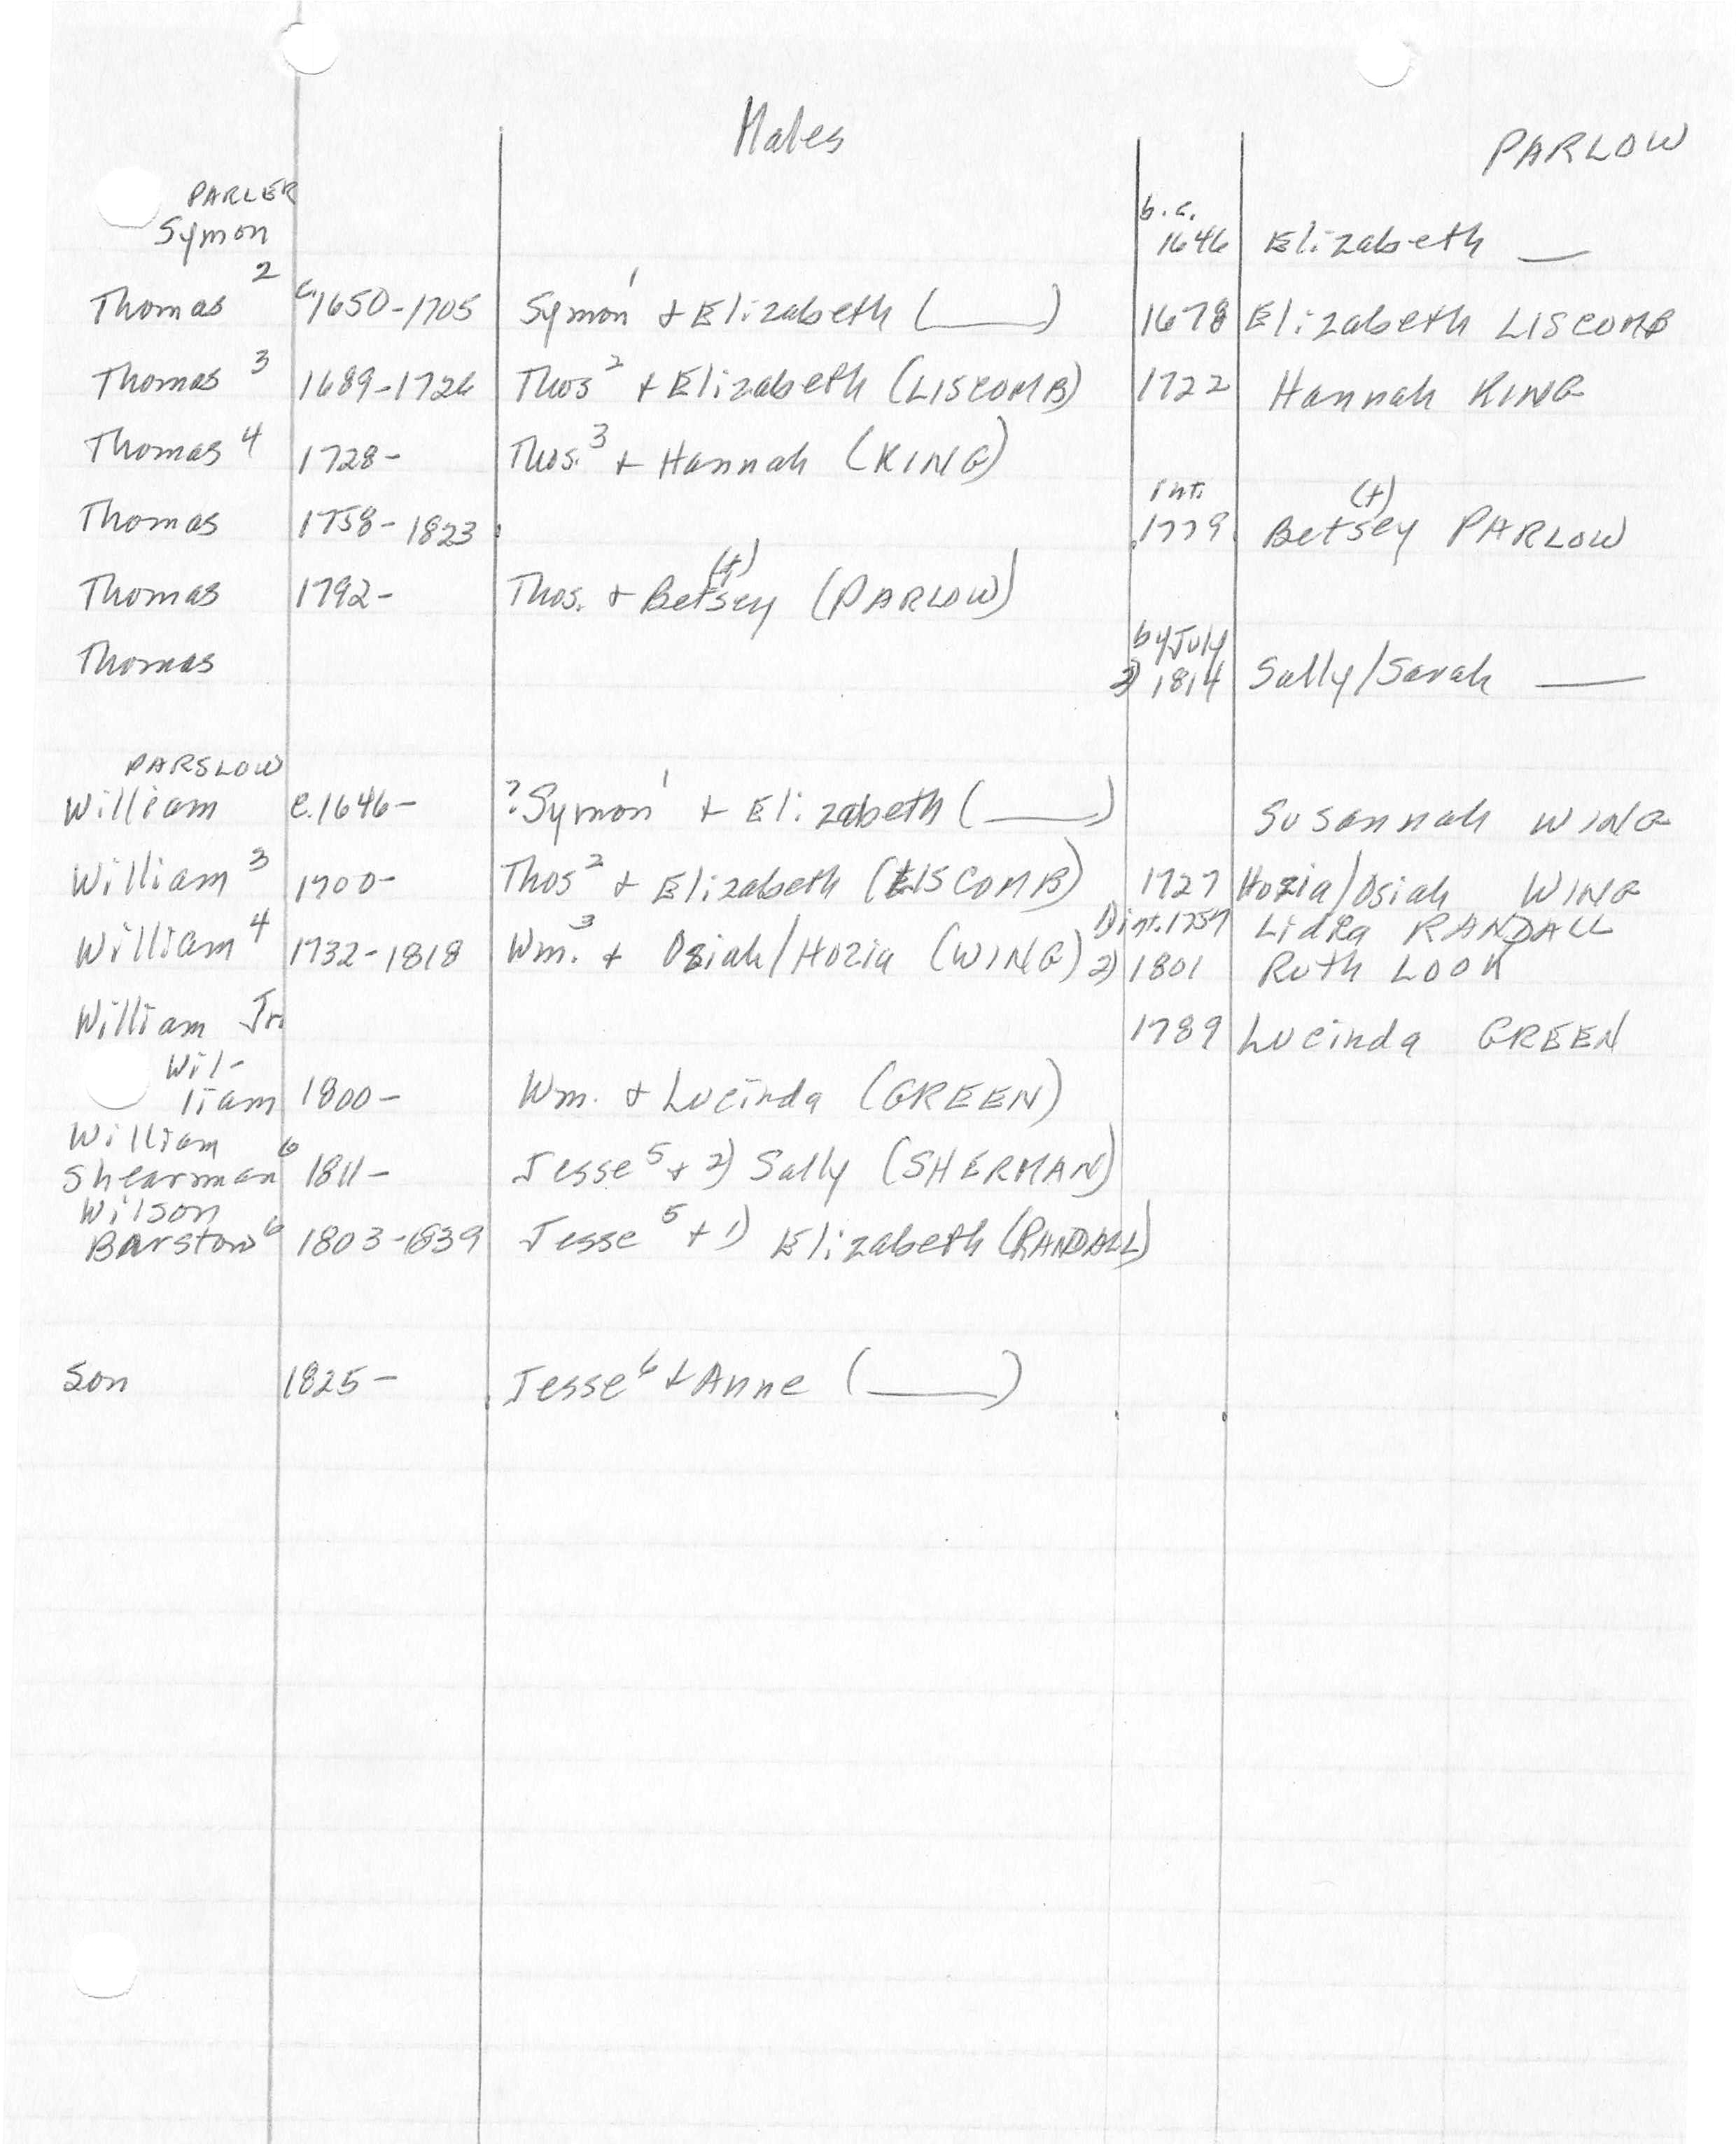 Males
PARLOW
PARLER
Symon b.c. 1646 Elizabeth —
Thomas 2 c.1650-1705 Symon 1 + Elizabeth (____) 1678 Elizabeth LISCOMB
Thomas 3 1689-1726 Thos 2 + Elizabeth (LISCOMB) 1722 Hannah KING
Thomas 4 1728- Thos. 3 + Hannah (KING)
Thomas 1758-1823 Int. 1779 Betsey (t) PARLOW
Thomas 1792- Thos. + Betsey (t) (PARLOW)
Thomas by July 2) 1814 Sally/Sarah —
PARSLOW
William c.1646- ?Symon 1 + Elizabeth (____) Susannah WING
William 3 1700- Thos 2 + Elizabeth (LISCOMB) 1727 Hozia/Osiah WING
1) int. 1757 Lidia RANDALL
William 4 1732-1818 Wm. 3 + Osiah/Hozia (WING) 2) 1801 Ruth LOOK
William Jr. 1789 Lucinda GREEN
Wil-
liam 1800- Wm. + Lucinda (GREEN)
William
Shearman 6 1811- Jesse 5 + 2) Sally (SHERMAN)
Wilson
Barstow 6 1803-1839 Jesse 5 + 1) Elizabeth (RANDALL)
Son 1825- Jesse 6 + Anne (____)